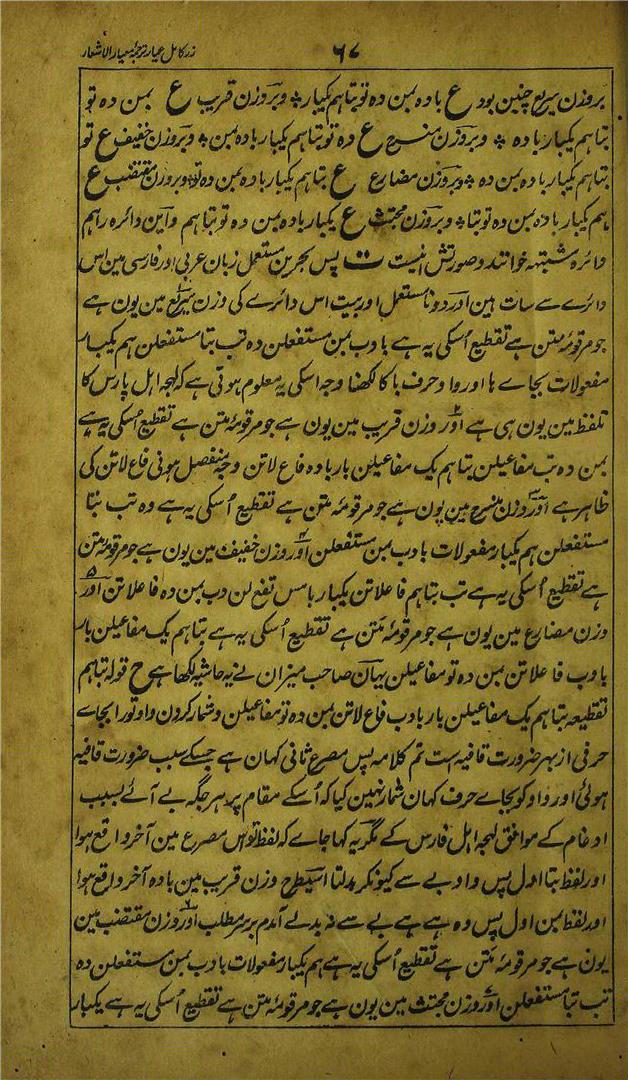 زر کامل عیار ترجمۂ معیار الاشعار
۶۷
بروزن سریع چنین بود ع باده بمن ده تو بتا هم یکبار ٭ وبر وزن قریب ع بمن ده تو
بتا هم یکبار باده ٭ وبر وزن منسرح ع ده تو بتا هم یکبار باده بمن ٭ وبر وزن خفیف ع تو
بتا هم یکبار باده بمن ده ٭ وبر وزن مضارع ع بتا هم یکبار باده بمن ده تو وبر وزن مقتضب ع
هم یکبار باده بمن ده تو بتا ٭ وبر وزن مجتث ع یکبار باده بمن ده تو بتا هم واین دائره را هم
دائره مشتبهه خوانند و صورتش اینست ت پس بحرین مستعمل زبان عربی اور فارسی مین اس
دائرے سے سات ہین اور دو نامستعمل اور بیت اس دائرے کی وزن سریع مین یون ہے
جو مرقومۂ متن ہے تقطیع اُسکی یہ ہے بادب بمن مستفعلن ده تب بتا مستفعلن هم یکبار
مفعولات بجاے ہا اور واو حرف با کا لکھنا وجہ اسکی یہ معلوم ہوتی ہے کہ لہجہ اہل پارس کا
تلفظ مین یون ہی ہے اور وزن قریب مین یون ہے جو مرقومۂ متن ہے تقطیع اُسکی یہ ہے
بمن ده تب مفاعیلن بتا هم یک مفاعیلن بار باده فاع لاتن وجہ منفصل ہونی فاع لاتن کی
ظاہر ہے اور وزن منسرح مین یون ہے جو مرقومۂ متن ہے تقطیع اُسکی یہ ہے وه تب بتا
مستفعلن هم یکبار مفعولات بادب بمن مستفعلن اور وزن خفیف مین یون ہے جو مرقومۂ متن
ہے تقطیع اُسکی یہ ہے تب بتا هم فاعلاتن یکبار با مس تفع لن دب بمن ده فاعلاتن اور
وزن مضارع مین یون ہے جو مرقومۂ متن ہے تقطیع اُسکی یہ ہے بتا هم یک مفاعیلن بار
بادب فاعلاتن بمن ده تو مفاعیلن یہان صاحب میزان نے یہ حاشیہ لکھا ہے ح قوله بتا هم
تقطیعه بتا هم یک مفاعیلن بار بادب فاع لاتن بمن ده تو مفاعیلن و شمار کردن واو تو را بجاے
حرفی از بهر ضرورت قافیه است تم کلامه پس مصرع ثانی کہان ہے جسکے سبب ضرورت قافیہ
ہوئی اور واو کو بجاے حرف کہان شمار نہین کیا کہ اُسکے مقام پر ہر جگہ بے آئے بسبب
ادغام کے موافق لہجہ اہل فارس کے مگر یہ کہا جاے کہ لفظ تو اس مصرع مین آخر واقع ہوا
اور لفظ بتا اول پس واو بے سے کیونکر بدلتا اسیطرح وزن قریب مین باده آخر واقع ہوا
اور لفظ بمن اول پس وه ہے بے سے نہ بدلے آمدم برسر مطلب اور وزن مقتضب مین
یون ہے جو مرقومۂ متن ہے تقطیع اُسکی یہ ہے هم یکبار مفعولات بادب بمن مستفعلن ده
تب بتا مستفعلن اور وزن مجتث مین یون ہے جو مرقومۂ متن ہے تقطیع اُسکی یہ ہے یکبار